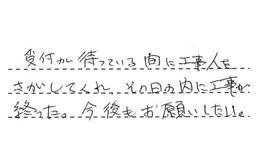 受付が待っている間に工事人を
さがしてくれ、その日の内に工事が
終った。今後もお願いしたい。